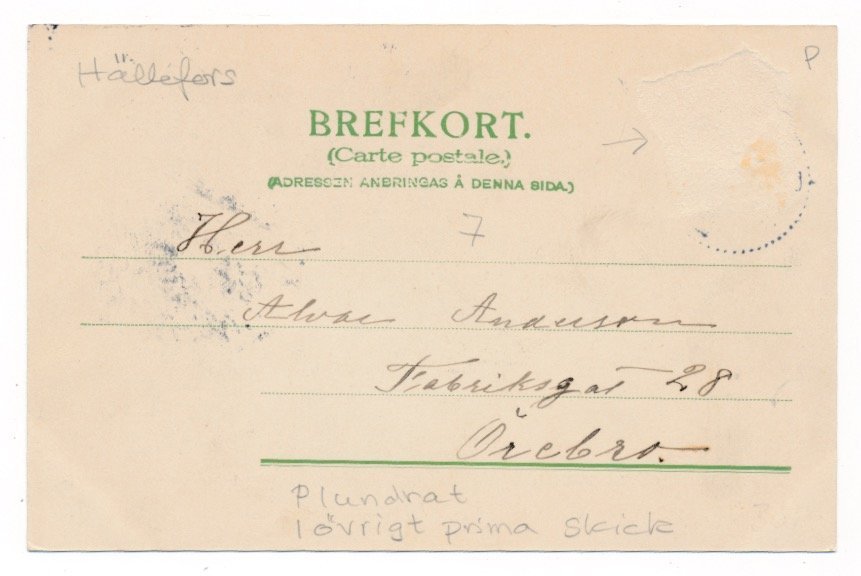 Hällefors
P
BREFKORT.
(Carte postale.)
(ADRESSEN ANBRINGAS Å DENNA SIDA.)
7
Herr
Alvar Anderson
Fabriksgat 28
Örebro.
Plundrat
I övrigt prima skick